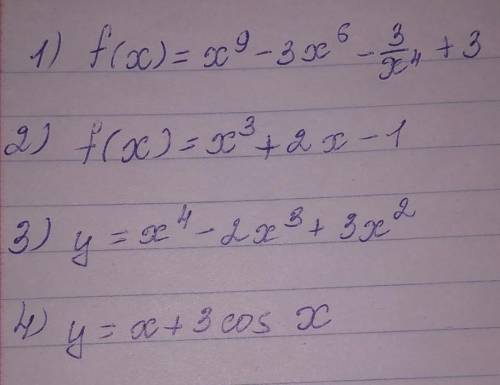 1) f(x) = x⁹ - 3x⁶ - 3/x⁴ + 3
2) f(x) = x³ + 2x - 1
3) y = x⁴ - 2x³ + 3x²
4) y = x + 3 cos x